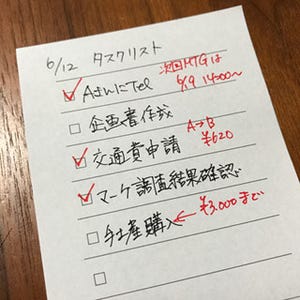 6/12 タスクリスト
☑ AさんにTel
次回MTGは
6/19 14:00〜
☐ 企画書作成
☑ 交通費申請
A→B
¥620
☑ マーケ調査結果確認
☐ 手土産購入 ← ¥3,000まで
☐